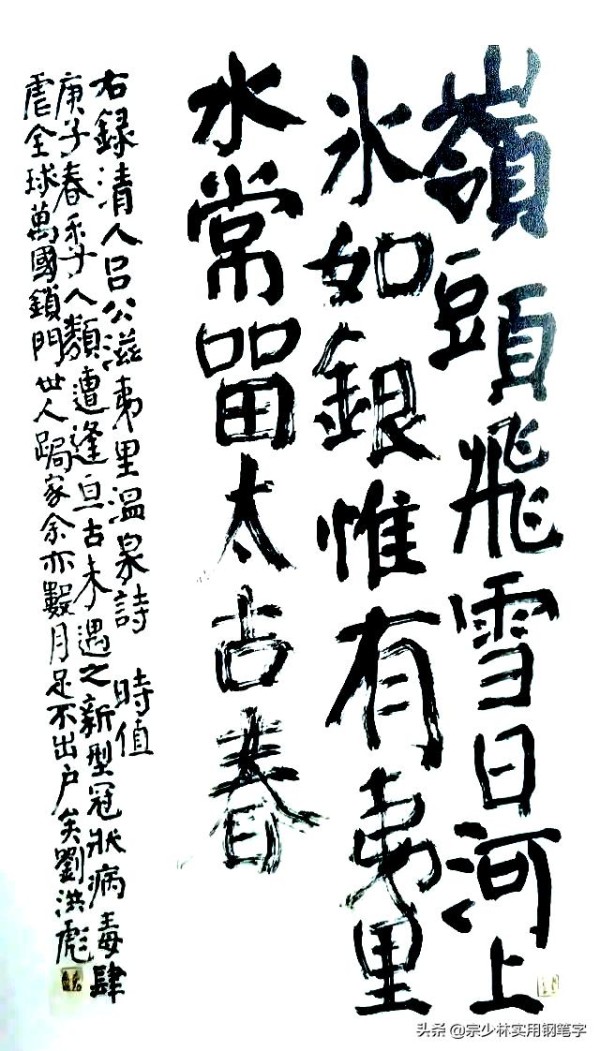 嶺頭飛雪日河上
氷如銀惟有夷里
水常留太古春
右録清人吕公滋夷里温泉詩 時值
庚子春季人類遭逢亘古未遇之新型冠狀病毒肆
虐全球萬國鎖門世人跼家余亦數月足不出户矣劉洪彪
头条 @宗少林实用钢笔字